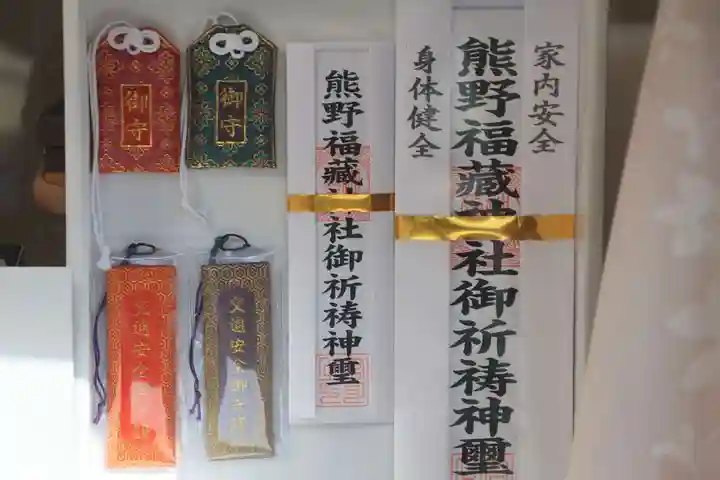 御守
御守
熊野福藏神社御祈祷神璽
家内安全
熊野福藏神社御祈祷神璽
身体健全
交通安全
交通安全御守